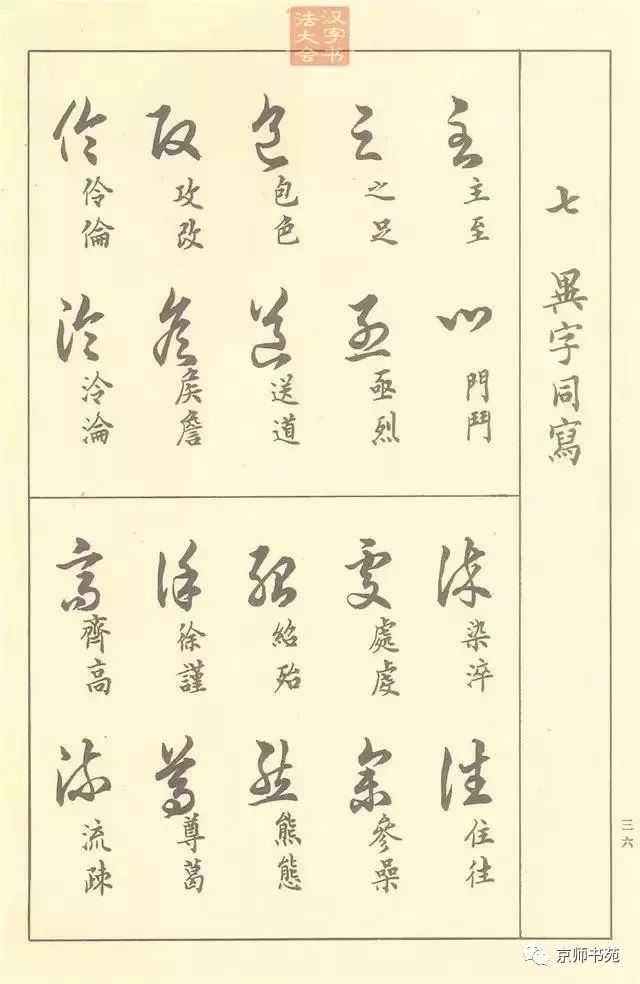 汉字书法大会
七 異字同寫
主至
之足
包色
攻改
伶倫
門鬥
亟烈
送道
侯詹
泠淪
染淬
處虔
紹殆
徐謹
齊高
住往
參喿
熊態
尊葛
流疎
三六
京师书苑